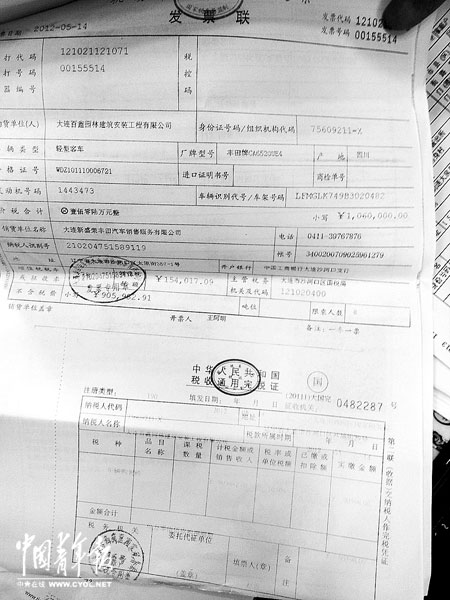 发票联
开票日期 2012-05-14
发票代码 12102
发票号码 00155514
打代码 121021121071
打号码 00155514
器编号
税控码
购货单位(人) 大连百鑫园林建筑安装工程有限公司 身份证号码/组织机构代码 75609211-X
车辆类型 轻型客车 厂牌型号 丰田牌CA6520UE4 产地 四川
合格证号 WDZ101110006721 进口证明书号 商检单号
发动机号码 1443473 车辆识别代号/车架号码 LFMGLK749B3020482
价税合计 壹佰零陆万元整 小写 ¥1,060,000.00
销货单位名称 大连新盛荣丰田汽车销售服务有限公司 电话 0411-39767876
纳税人识别号 210204751589119 帐号 3400200709025961279
开户银行 中国工商银行大连沙河口支行
¥154,017.09 主管税务机关及代码 大连市沙河口区国税局 121020400
不含税价 小写 ¥905,982.91 吨位 限乘人数
销货单位盖章 开票人 王阿明 备注:一车一票
中华人民共和国
税收通用完税证
国
(20111)大国完
0482287 号
注册类型: 填发日期: 年 月 日 征收机关:
纳税人代码 地址
纳税人名称 税款所属时期 年 月 日
税种 品目名称 课税数量 计税金额或销售收入 税率或单位税额 已缴或扣除额 实缴金额
金额合计
税务机关 委托代征单位 填票人(章) 备注
(盖章)
第二联(收据)交纳税人作完税凭证
中国青年报
中青在线 WWW.CYOL.NET